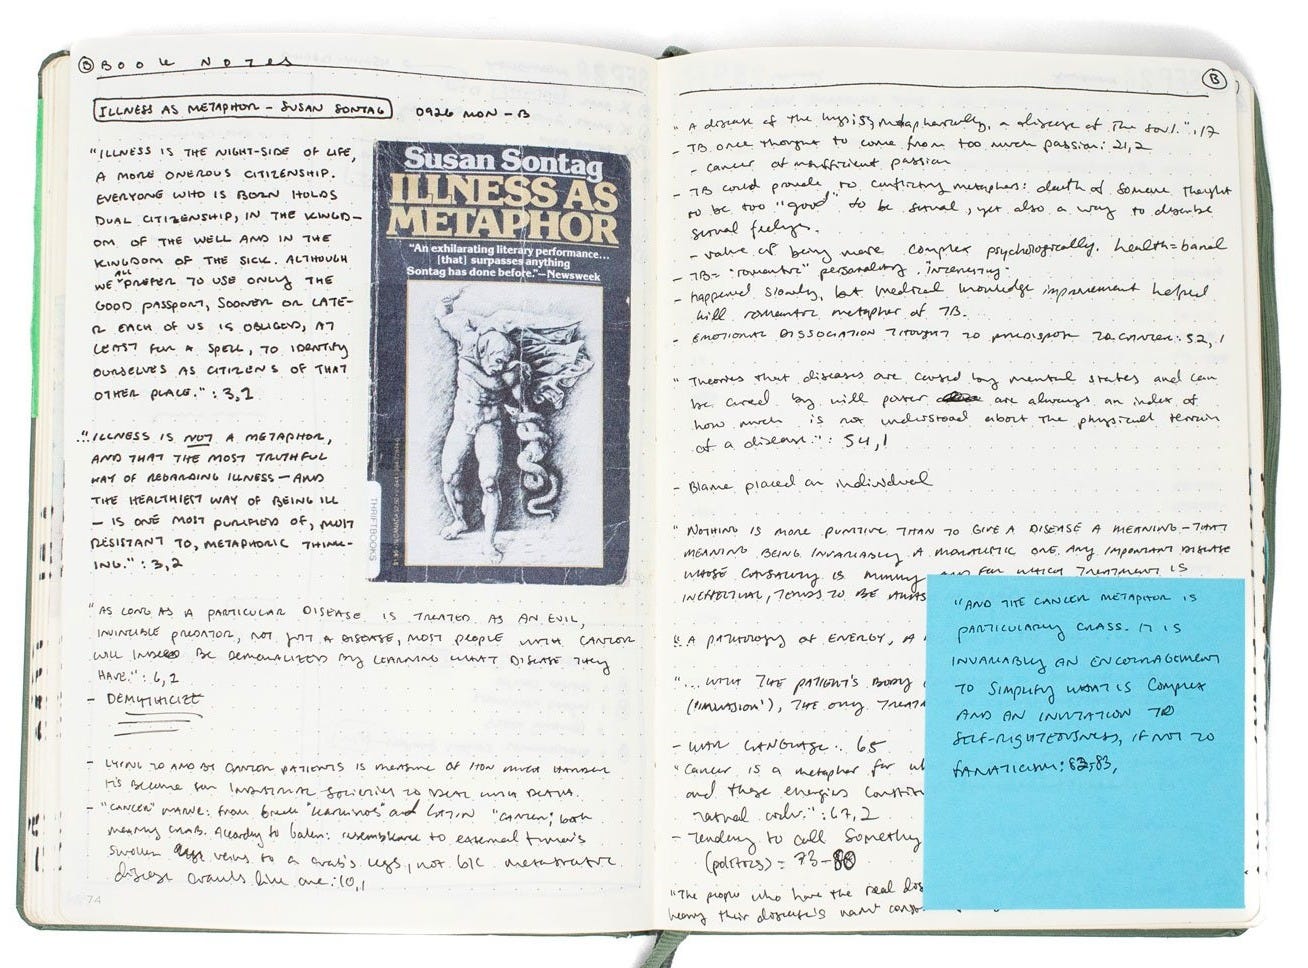 B BOOK NOTES
ILLNESS AS METAPHOR - SUSAN SONTAG 0926 MON - B
"ILLNESS IS THE NIGHT-SIDE OF LIFE,
A MORE ONEROUS CITIZENSHIP.
EVERYONE WHO IS BORN HOLDS
DUAL CITIZENSHIP, IN THE KINGD-
OM OF THE WELL AND IN THE
KINGDOM OF THE SICK. ALTHOUGH
WE ALL PREFER TO USE ONLY THE
GOOD PASSPORT, SOONER OR LATE-
R EACH OF US IS OBLIGED, AT
LEAST FOR A SPELL, TO IDENTIFY
OURSELVES AS CITIZENS OF THAT
OTHER PLACE.": 3,1
"ILLNESS IS NOT A METAPHOR,
AND THAT THE MOST TRUTHFUL
WAY OF REGARDING ILLNESS—AND
THE HEALTHIEST WAY OF BEING ILL
— IS ONE MOST PURIFIED OF, MOST
RESISTANT TO, METAPHORIC THINK-
ING.": 3,2
Susan Sontag
ILLNESS AS
METAPHOR
"An exhilarating literary performance...
[that] surpasses anything
Sontag has done before."—Newsweek
THRIFTBOOKS
"AS LONG AS A PARTICULAR DISEASE IS TREATED AS AN EVIL,
INVINCIBLE PREDATOR, NOT JUST A DISEASE, MOST PEOPLE WITH CANCER
WILL INDEED BE DEMORALIZED BY LEARNING WHAT DISEASE THEY
HAVE.": 6,2
- DEMYTHICIZE
- LYING TO AND BY CANCER PATIENTS IS MEASURE OF HOW MUCH HARDER
IT'S BECOME FOR INDUSTRIAL SOCIETIES TO DEAL WITH DEATH.
- "CANCER" NAME: from Greek "karkinos" and LATIN "cancer," both
meaning CRAB. According to Galen: resemblance to external tumor's
swollen veins to a crab's legs, not b/c metastatic
disease crawls like one: 10,1
74
B
"A disease of the lungs is, metaphorically, a disease of the soul.": 17
- TB once thought to come from too much passion: 21,2
- cancer of insufficient passion
- TB could provide to conflicting metaphors: death of someone thought
to be too "good" to be sexual, yet also a way to describe
sexual feelings.
- value of being more complex psychologically. health = banal
- TB = "romantic" personality. "interesting."
- Happened slowly, but medical knowledge improvement helped
kill romantic metaphor of TB.
- EMOTIONAL DISSOCIATION THOUGHT TO PREDISPOSE TO CANCER: 52,1
"Theories that diseases are caused by mental states and can
be cured by will power are always an index of
how much is not understood about the physical terrain
of a disease.": 54,1
- Blame placed on individual
"NOTHING IS MORE PUNITIVE THAN TO GIVE A DISEASE A MEANING—THAT
MEANING BEING INVARIABLY A MORALISTIC ONE. ANY IMPORTANT DISEASE
WHOSE CAUSALITY IS MURKY, AND FOR WHICH TREATMENT IS
INEFFECTUAL, TENDS TO BE
A PATHOLOGY OF ENERGY, A
"...WITH THE PATIENT'S BODY
THE ONLY
- WAR LANGUAGE: 65
"Cancer is a metaphor for
and these energies
: 67,2
- Tendency to call something
(politics) = 73-80
"The people who have the real
hearing their disease's name
"AND THE CANCER METAPHOR IS
PARTICULARLY CRASS. IT IS
INVARIABLY AN ENCOURAGEMENT
TO SIMPLIFY WHAT IS COMPLEX
AND AN INVITATION TO
SELF-RIGHTEOUSNESS, IF NOT TO
FANATICISM: 82-83,